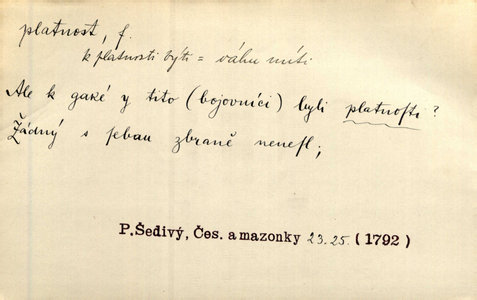 platnost, f.
k platnosti býti = váhu míti
Ale k gaké y tito (bojovníci) byli platnosti?
Žádný s sebau zbraně nenesl;
P. Šedivý, Čes. amazonky 23.25. (1792)